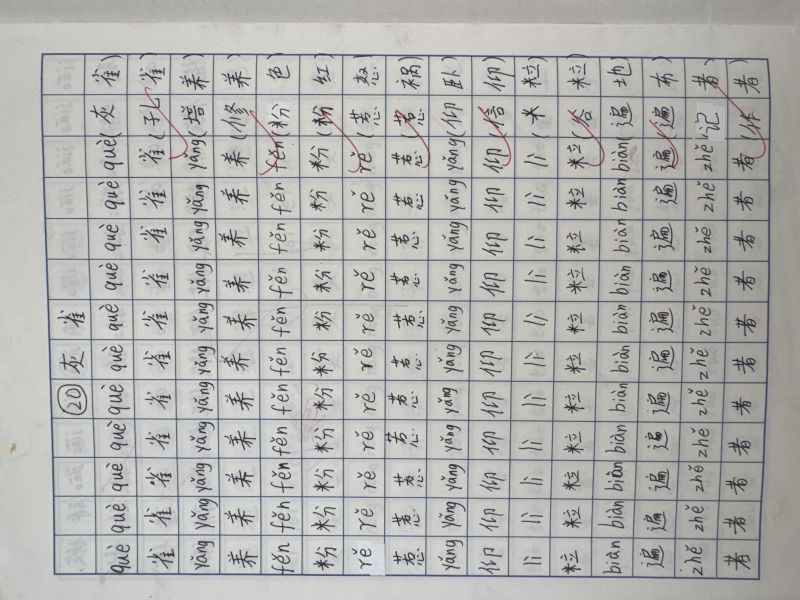 ⑳ 灰雀
què què què què què què què què què què què (灰雀)
雀雀雀雀雀雀雀雀雀雀雀(孔雀)
yǎng yǎng yǎng yǎng yǎng yǎng yǎng yǎng yǎng yǎng yǎng (培养)
养养养养养养养养养养养(修养)
fěn fěn fěn fěn fěn fěn fěn fěn fěn fěn fěn (粉色)
粉粉粉粉粉粉粉粉粉粉粉(粉红)
rě rě rě rě rě rě rě rě rě rě rě (惹)
惹惹惹惹惹惹惹惹惹惹惹(惹祸)
yǎng yǎng yǎng yǎng yǎng yǎng yǎng yǎng yǎng yǎng yǎng (仰卧)
仰仰仰仰仰仰仰仰仰仰仰(信仰)
lì lì lì lì lì lì lì lì lì lì lì (米粒)
粒粒粒粒粒粒粒粒粒粒粒(谷粒)
biàn biàn biàn biàn biàn biàn biàn biàn biàn biàn biàn (遍地)
遍遍遍遍遍遍遍遍遍遍遍(遍布)
zhě zhě zhě zhě zhě zhě zhě zhě zhě zhě zhě (记者)
者者者者者者者者者者者(作者)